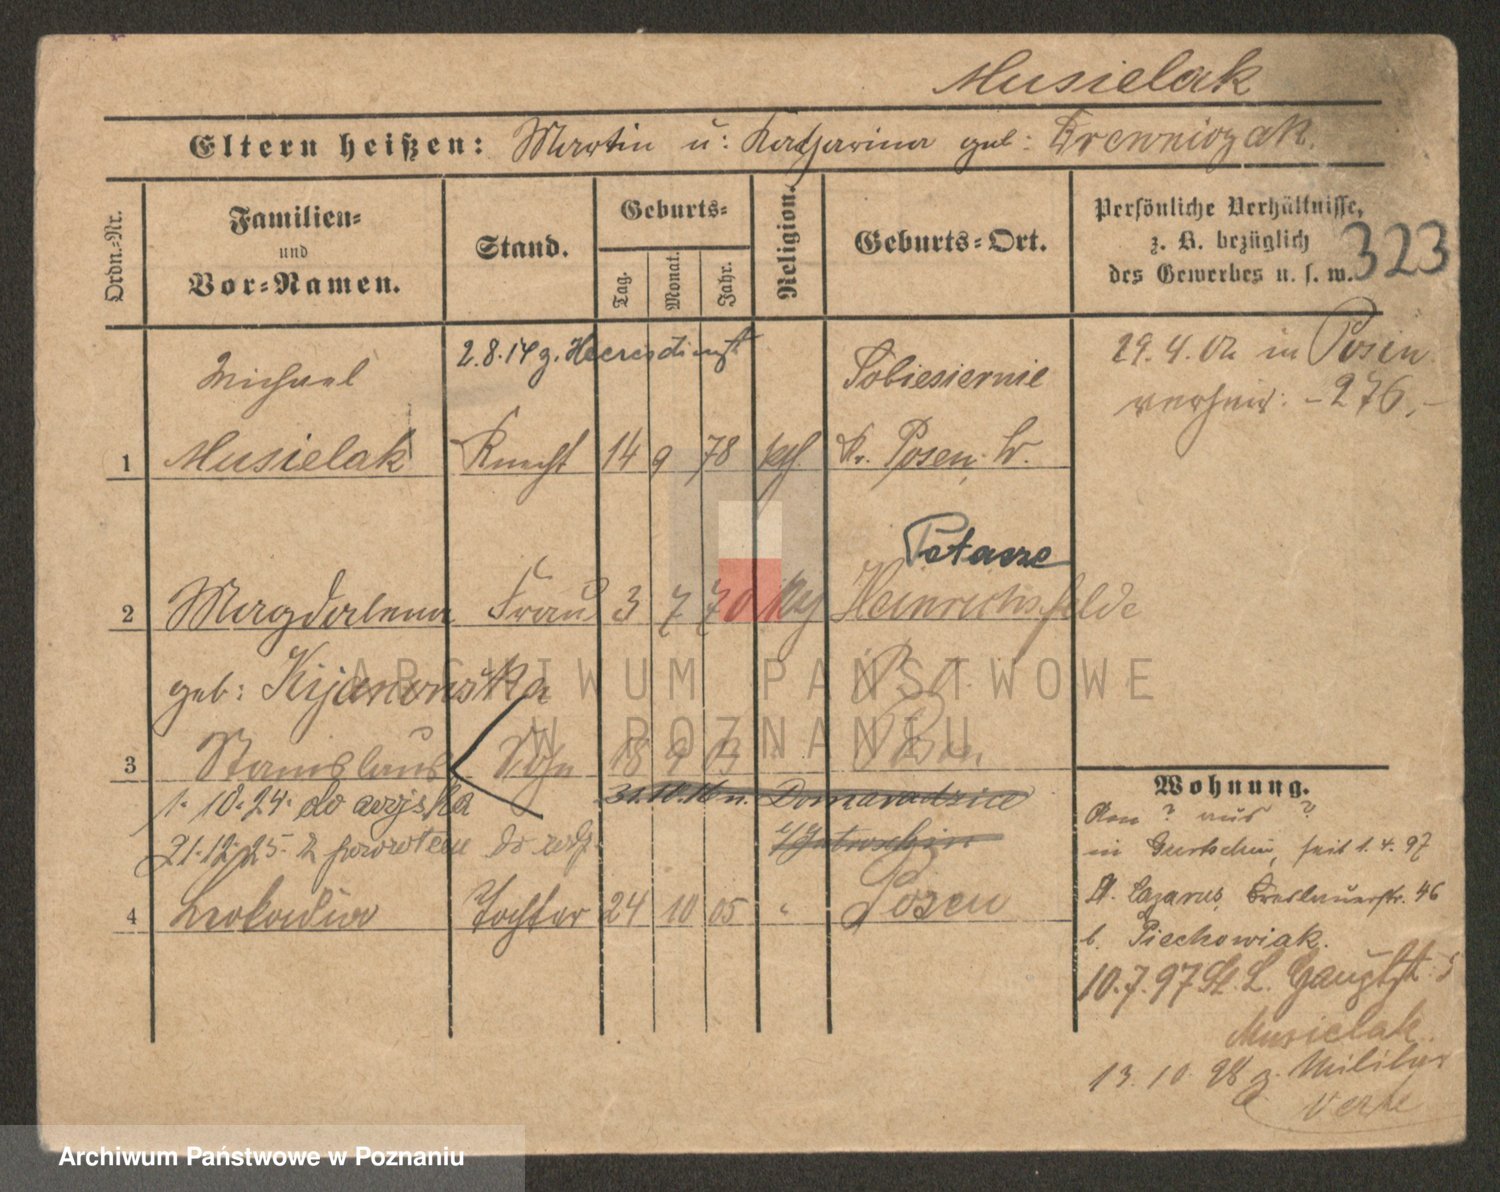 Musielak
Eltern heißen: Martin u: Katharina geb:
Ordn.=Nr.
Familien=
und
Vor=Namen.
Stand.
Geburts=
Tag.
Monat.
Jahr.
Religion.
Geburts=Ort.
Persönliche Verhältnisse,
z. B. bezüglich
des Gewerbes u. s. w.
323
2.8.14 z. Heeresdienst
Michael
Sobiesiernie
29.4.02 in Posen
verheir: - 276.-
1 Musielak Knecht 14 9 78 kth. Kr. Posen W.
Petacze
2 Magdalena Frau 3 7 70 Heinrichsfelde
geb: Kijanowska
3 Stanislaus Sohn 18 9 Posen
1. 10. 24. do wojska
31.10.16 n. Domaradzice
21.12.25. z powrotem
4 Leokadia Tochter 24 10 05 " Posen
Wohnung.
? aus ?
in Gurtschin, seit 1.4.97
St. Lazarus, Breslauerstr. 46
b. Piechowiak.
10.7.97 St. L. Hauptstr. 5
Musielak
13.10.98 z. Militär
ARCHIWUM PAŃSTWOWE
W POZNANIU
Archiwum Państwowe w Poznaniu